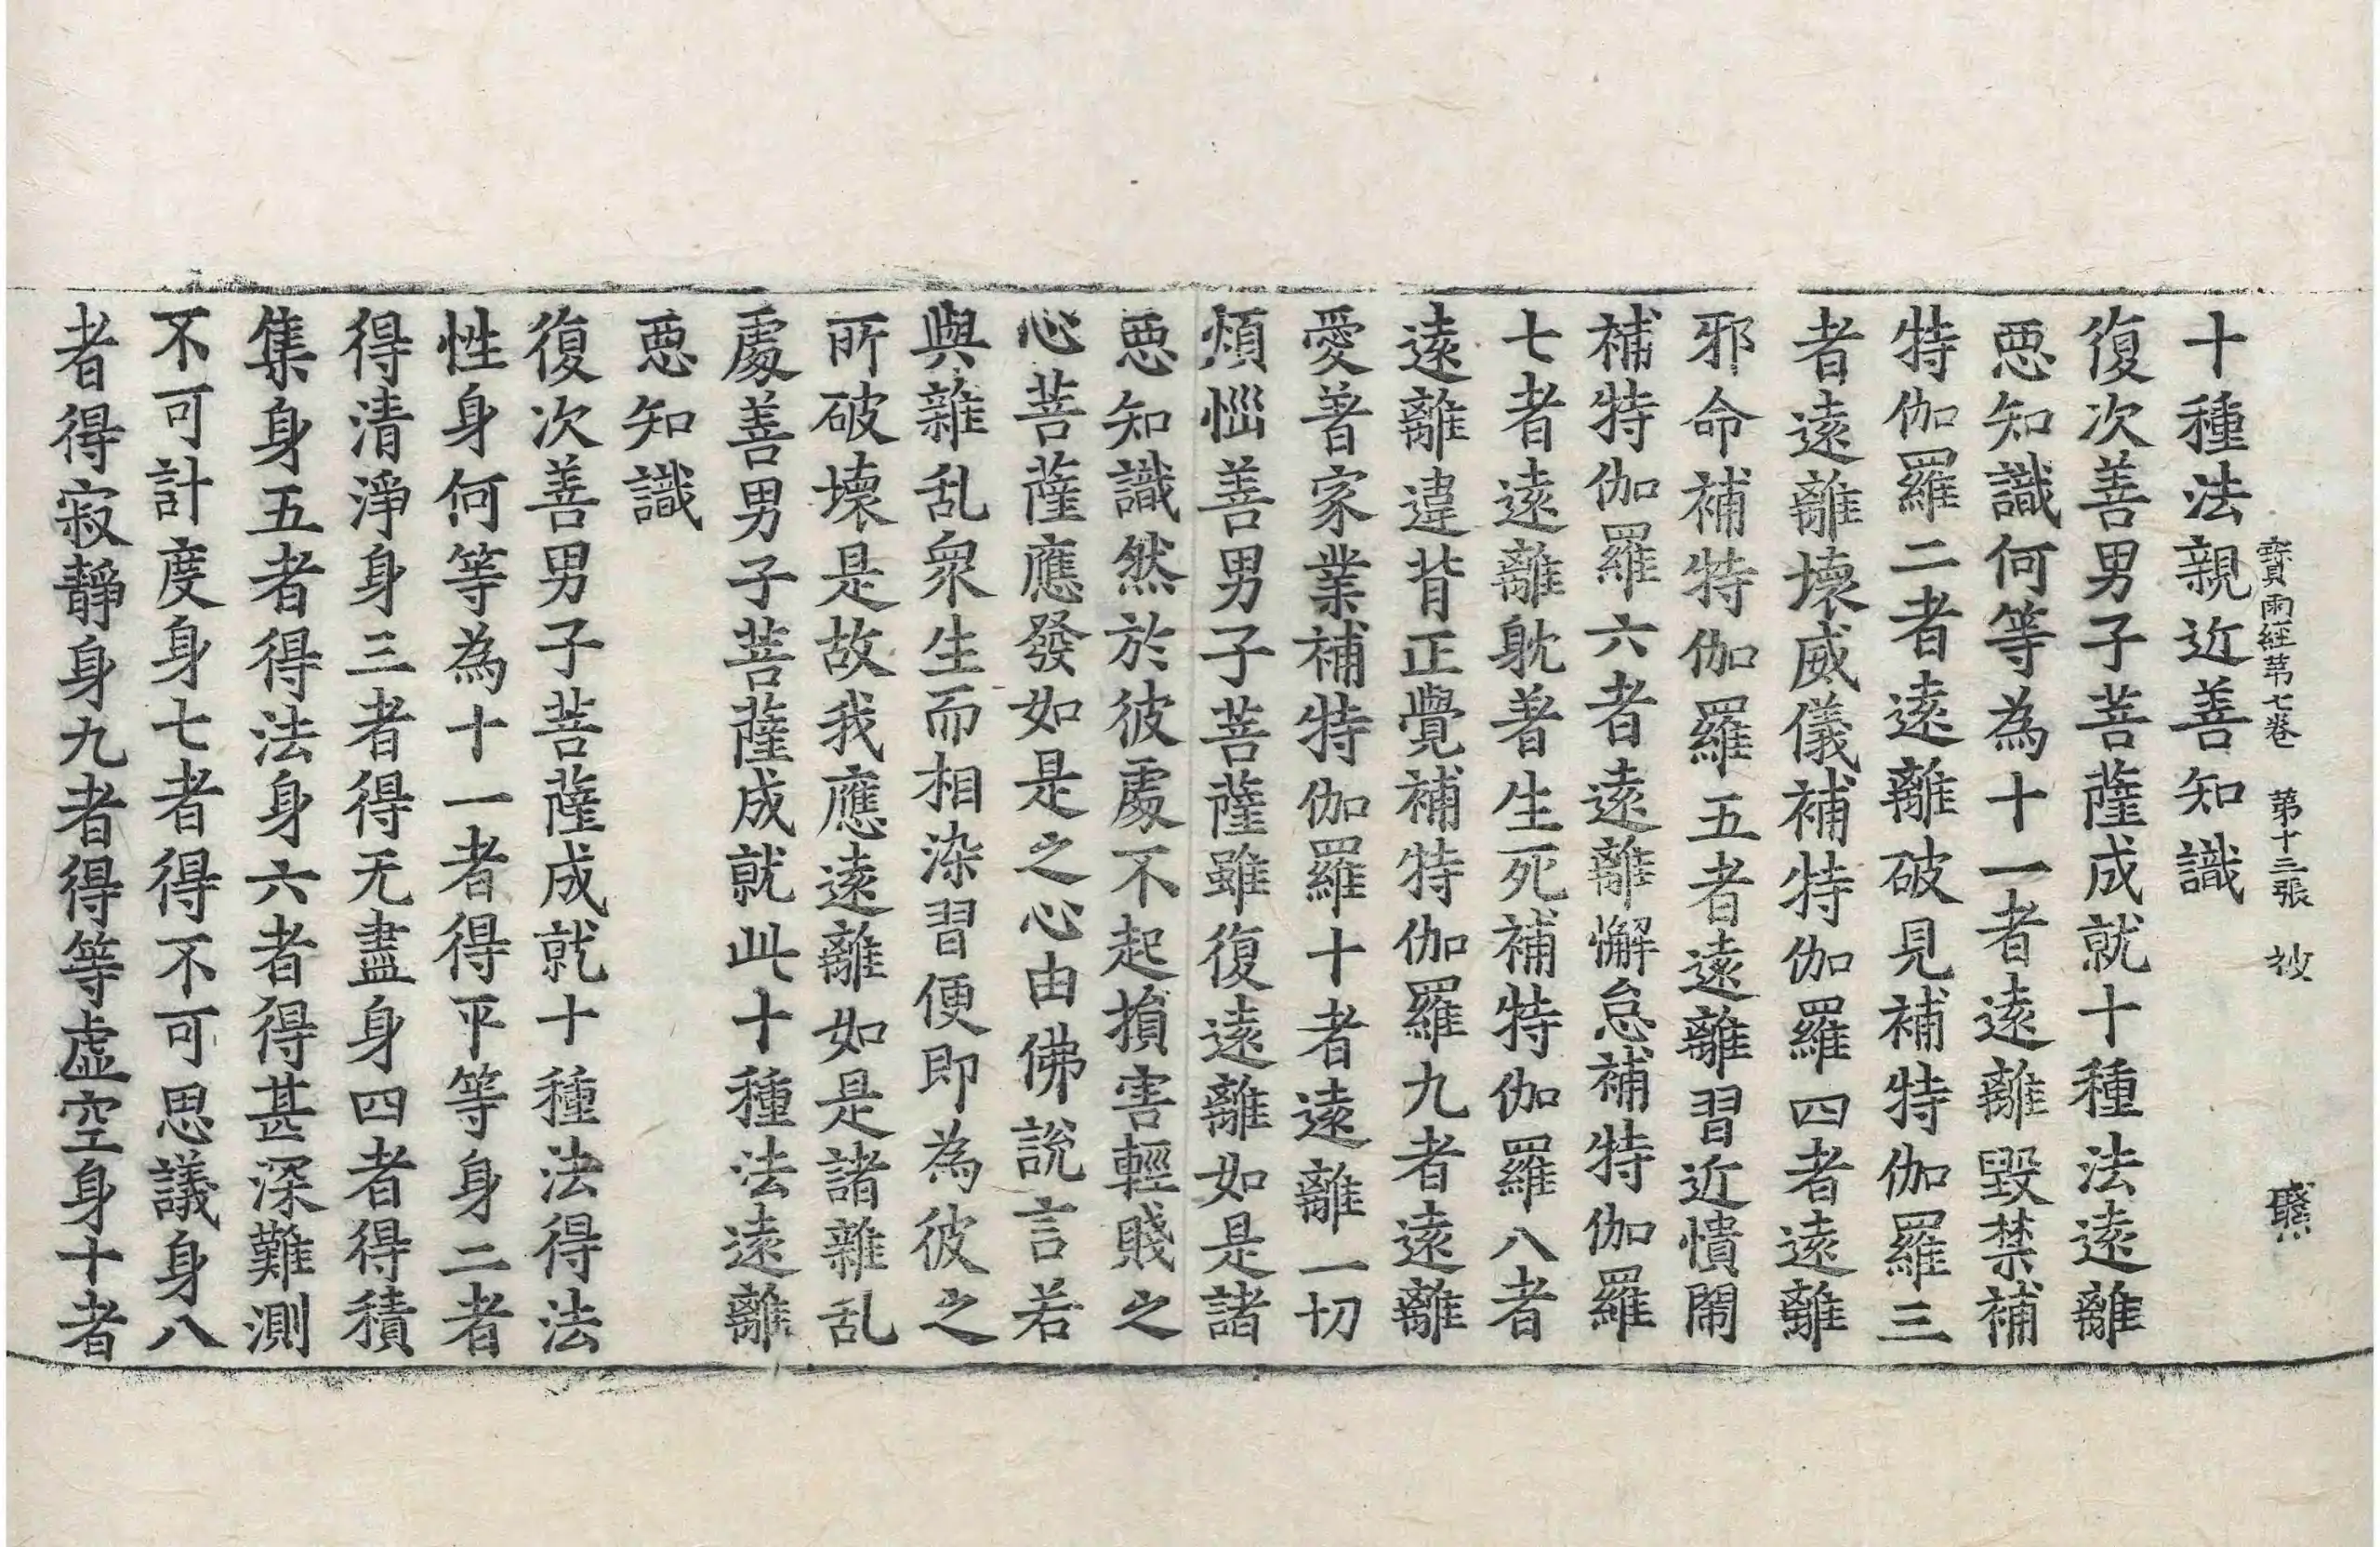 寳雨經苐七卷 第十三張 㘽
十種法親近善知識
復次善男子菩薩成就十種法遠離
惡知識何等為十一者遠離毀禁補
特伽羅二者遠離破見補特伽羅三
者遠離壞威儀補特伽羅四者遠離
邪命補特伽羅五者遠離習近憒閙
補特伽羅六者遠離懈怠補特伽羅
七者遠離躭著生死補特伽羅八者
遠離違背正覺補特伽羅九者遠離
愛著家業補特伽羅十者遠離一切
煩惱善男子菩薩雖復遠離如是諸
惡知識然於彼處不起損害輕賤之
心菩薩應發如是之心由佛說言若
與雜乱眾生而相染習便即為彼之
所破壞是故我應遠離如是諸雜乱
處善男子菩薩成就此十種法遠離
惡知識
復次善男子菩薩成就十種法得法
性身何等為十一者得平等身二者
得清淨身三者得无盡身四者得積
集身五者得法身六者得甚深難測
不可計度身七者得不可思議身八
者得寂靜身九者得等虛空身十者